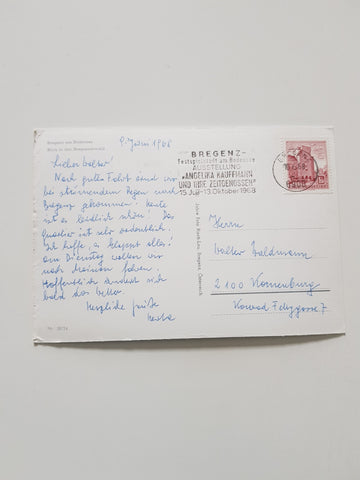 Bregenz am Bodensee
Blick in den Bregenzerwald
9. Juni 1968
Lieber Walter!
Nach guter Fahrt sind wir
bei strömendem Regen nach
Bregenz gekommen. heute
ist es endlich schön! Das
Quartier ist sehr ordentlich.
Ich hoffe, es klappt alles!
am Dienstag wollen wir
nach fahren.
Hoffentlich sich
bald das Wetter.
Herzliche Grüße
BREGENZ
Festspielstadt am Bodensee
AUSSTELLUNG
„ANGELIKA KAUFFMANN
UND IHRE ZEITGENOSSEN"
15. Juli - 13. Oktober 1968
Herrn
Walter Waldmann
2100 Korneuburg
Konrad 7